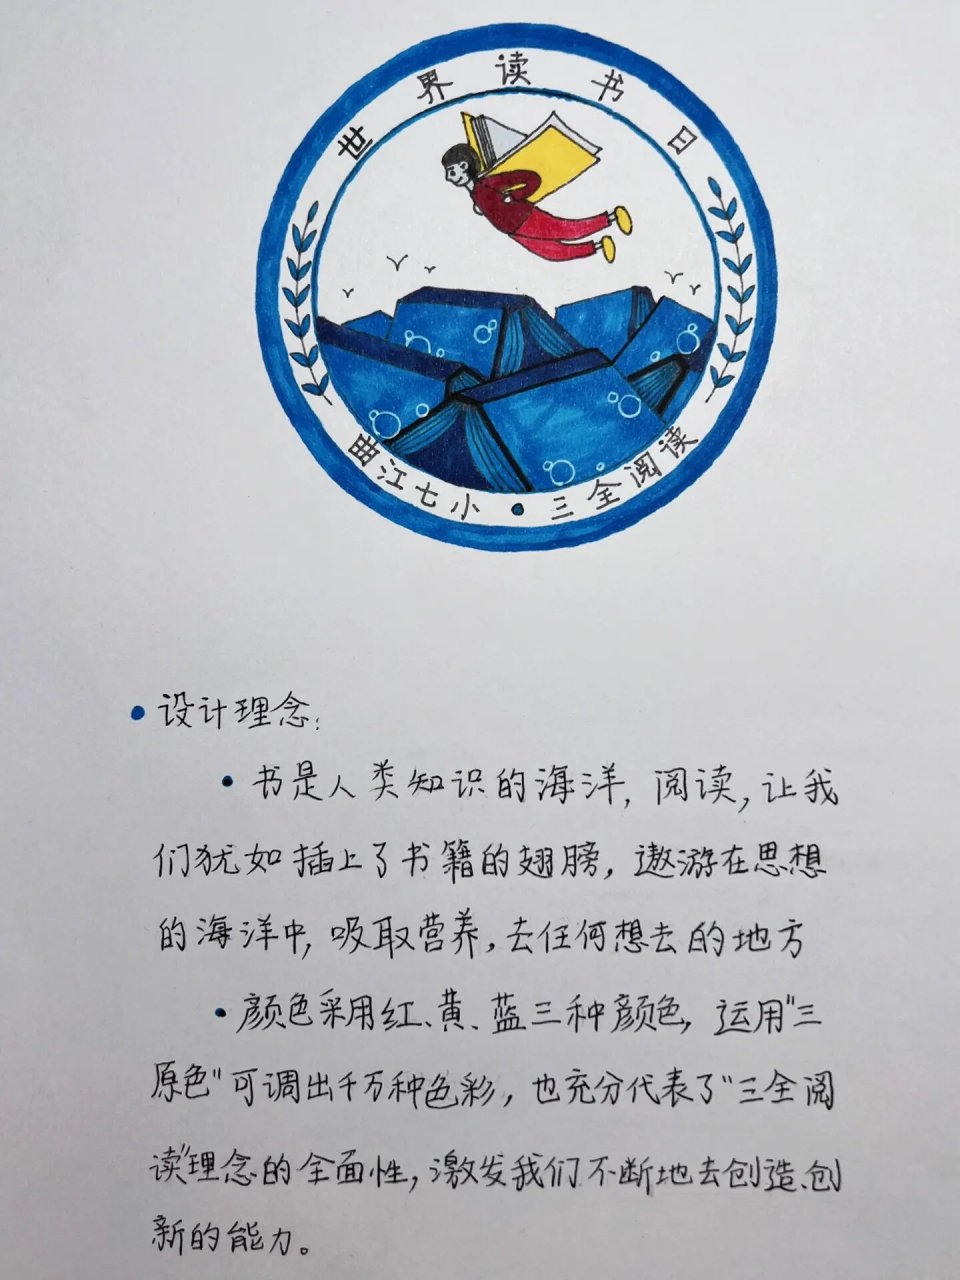 世界读书日
曲江七小·三全阅读
·设计理念:
·书是人类知识的海洋,阅读,让我
们犹如插上了书籍的翅膀,遨游在思想
的海洋中,吸取营养,去任何想去的地方
·颜色采用红、黄、蓝三种颜色,运用"三
原色"可调出千万种色彩,也充分代表了"三全阅
读"理念的全面性,激发我们不断地去创造、创
新的能力。